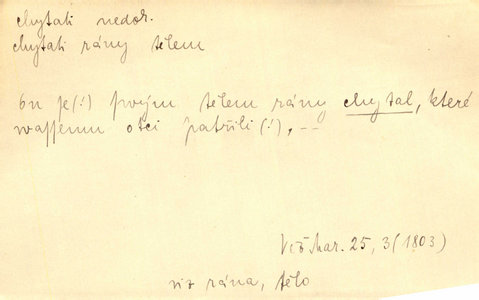 chytati nedok.
chytati rány tělem
ón je(!) swým tělem rány chytal, které
wassemu otci patřili(!), --
25, 3 (1803)
viz rána, tělo